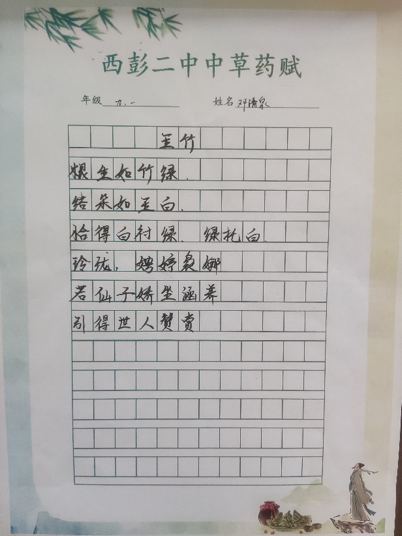 西彭二中中草药赋
年级 九.一 姓名 邓倩泉
玉竹
根生如竹绿.
结朵如玉白.
恰得白衬绿. 绿托白
玲珑, 娉婷袅娜
若仙子娇坐涵养
引得世人赞赏